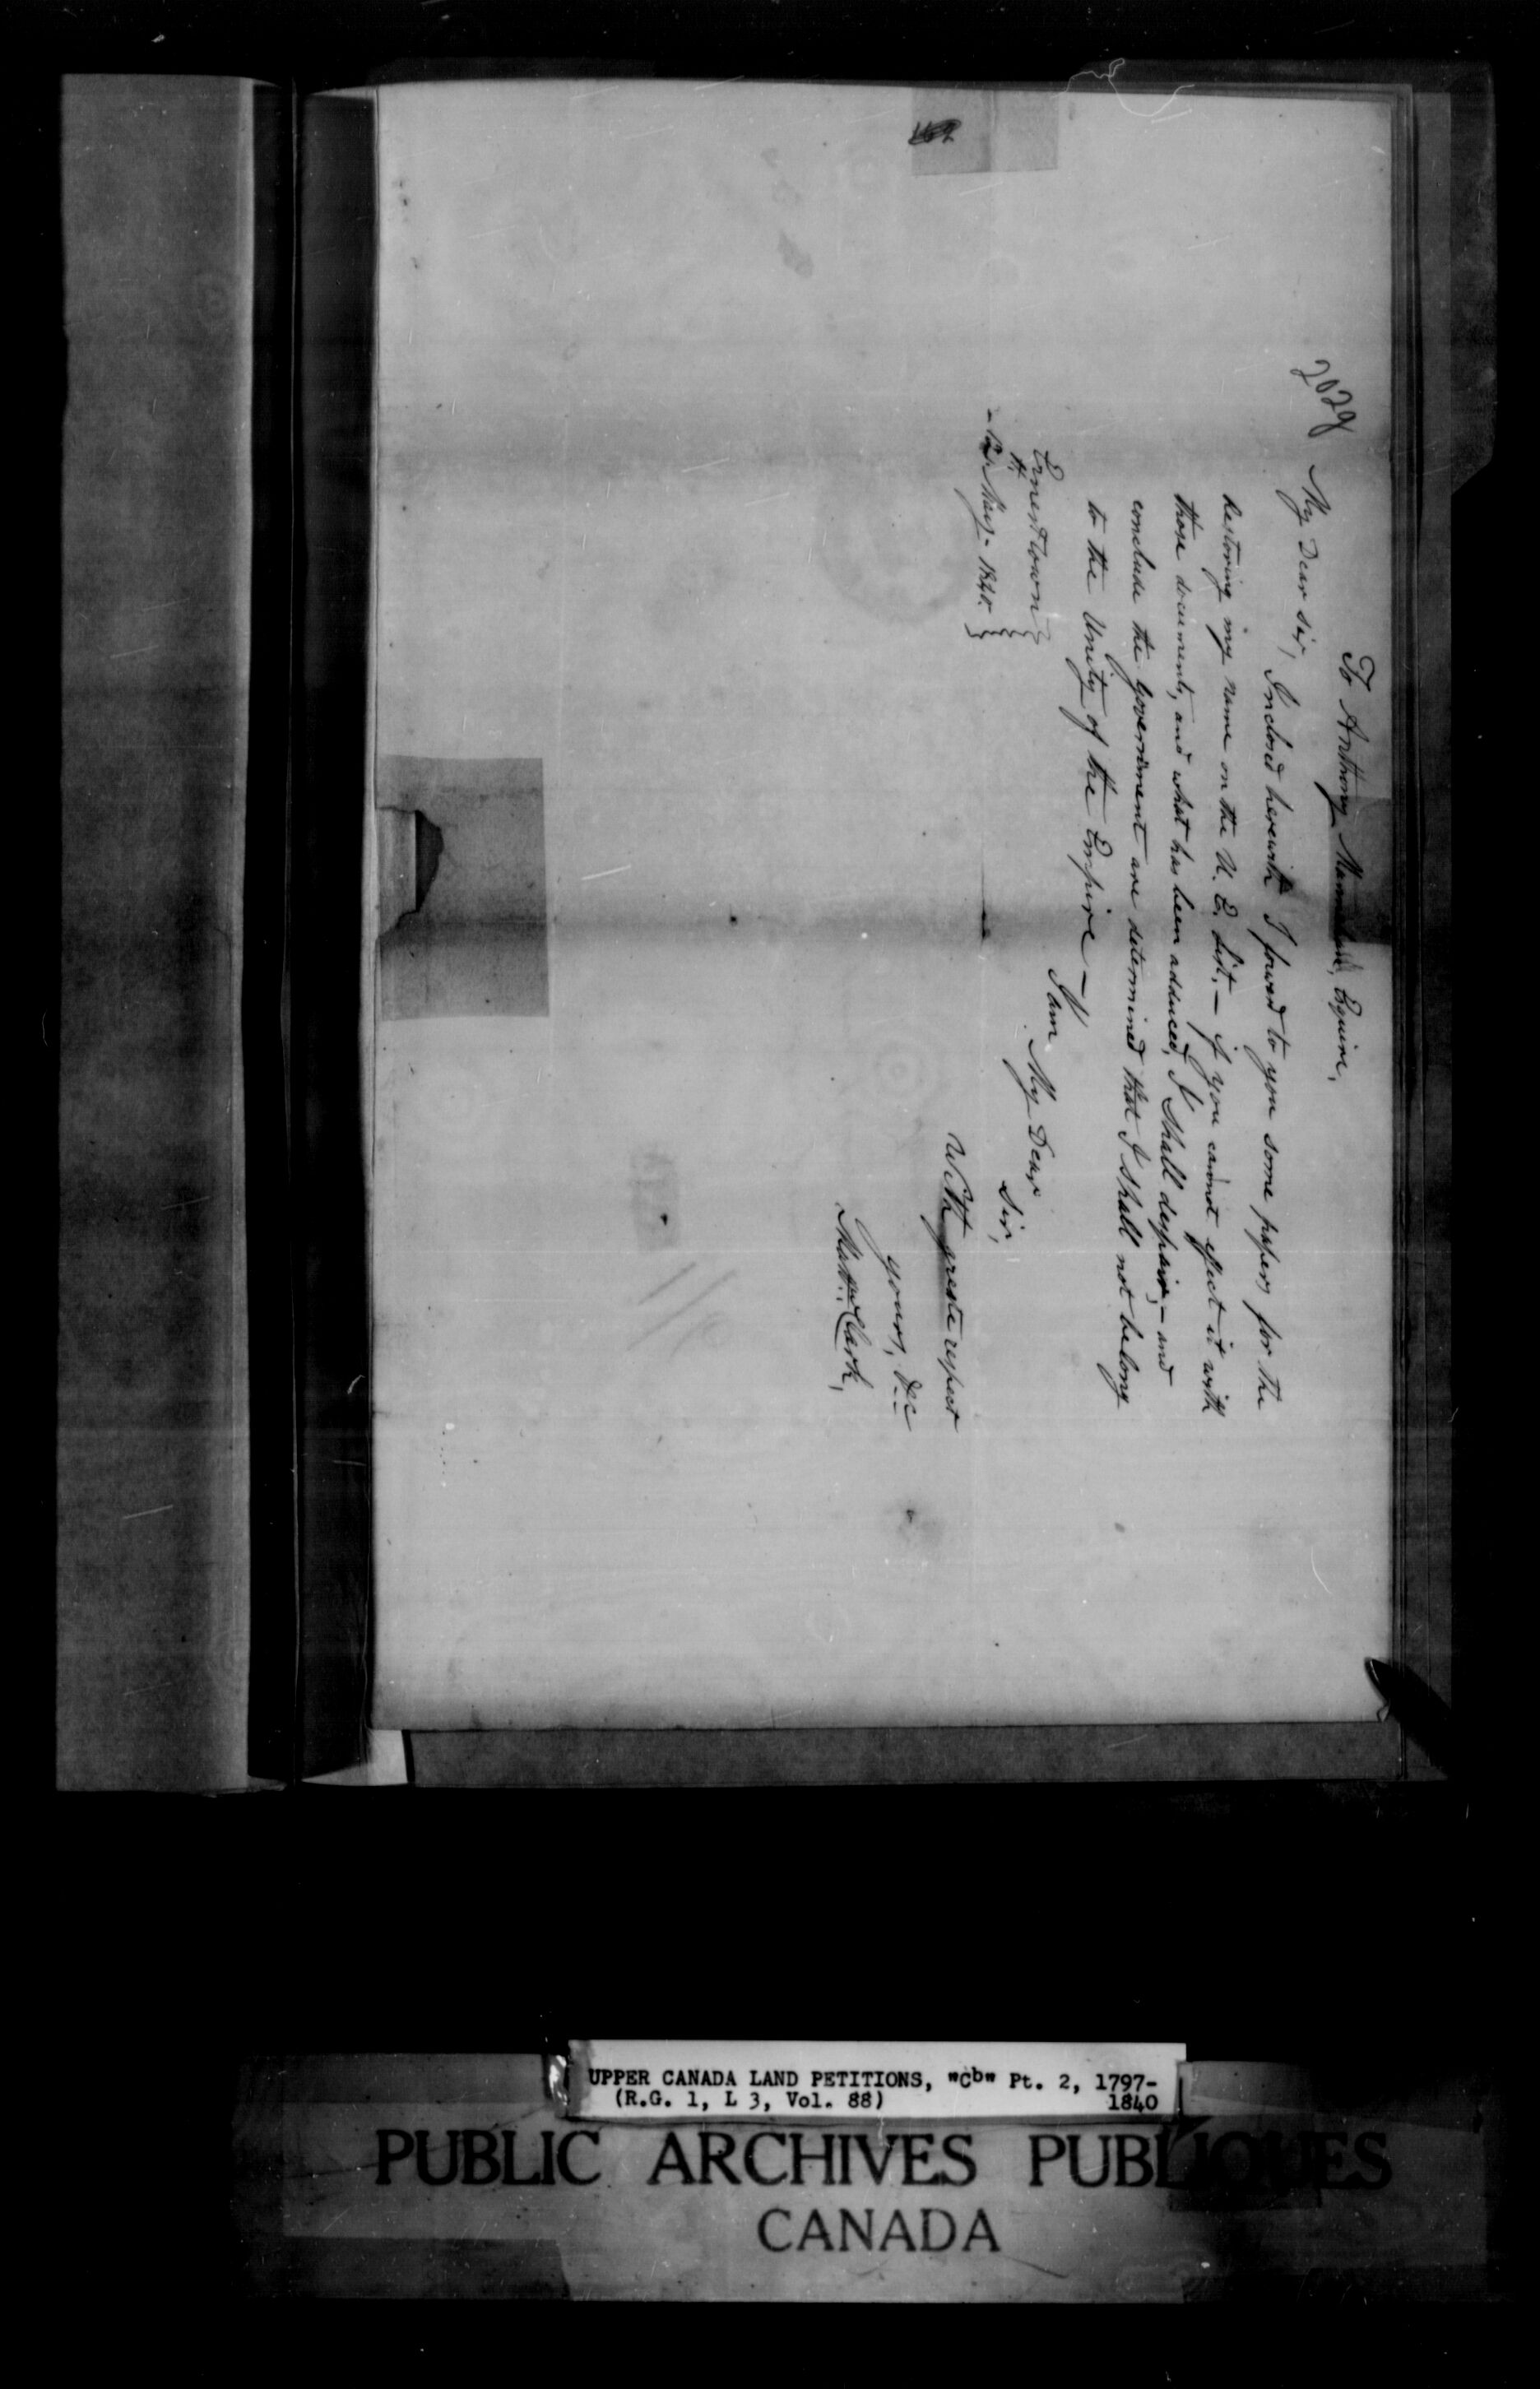 202g
To Anthony Esquire,
My Dear Sir,
Inclosed herewith I forward to you some papers, for the
Restoring my name on the U. E. List, — if you cannot effect it with
those documents, and what has been adduced, I Shall despair, — and
conclude the Government are determined that I Shall not belong
to the Unity of the Empire —
I am
My Dear
Sir,
Ernest town
May - 1840.
With greate respect
yours, &c
Mattw Clark,
UPPER CANADA LAND PETITIONS, "Cb" Pt. 2, 1797-
(R.G. 1, L 3, Vol. 88) 1840
PUBLIC ARCHIVES PUBLIQUES
CANADA